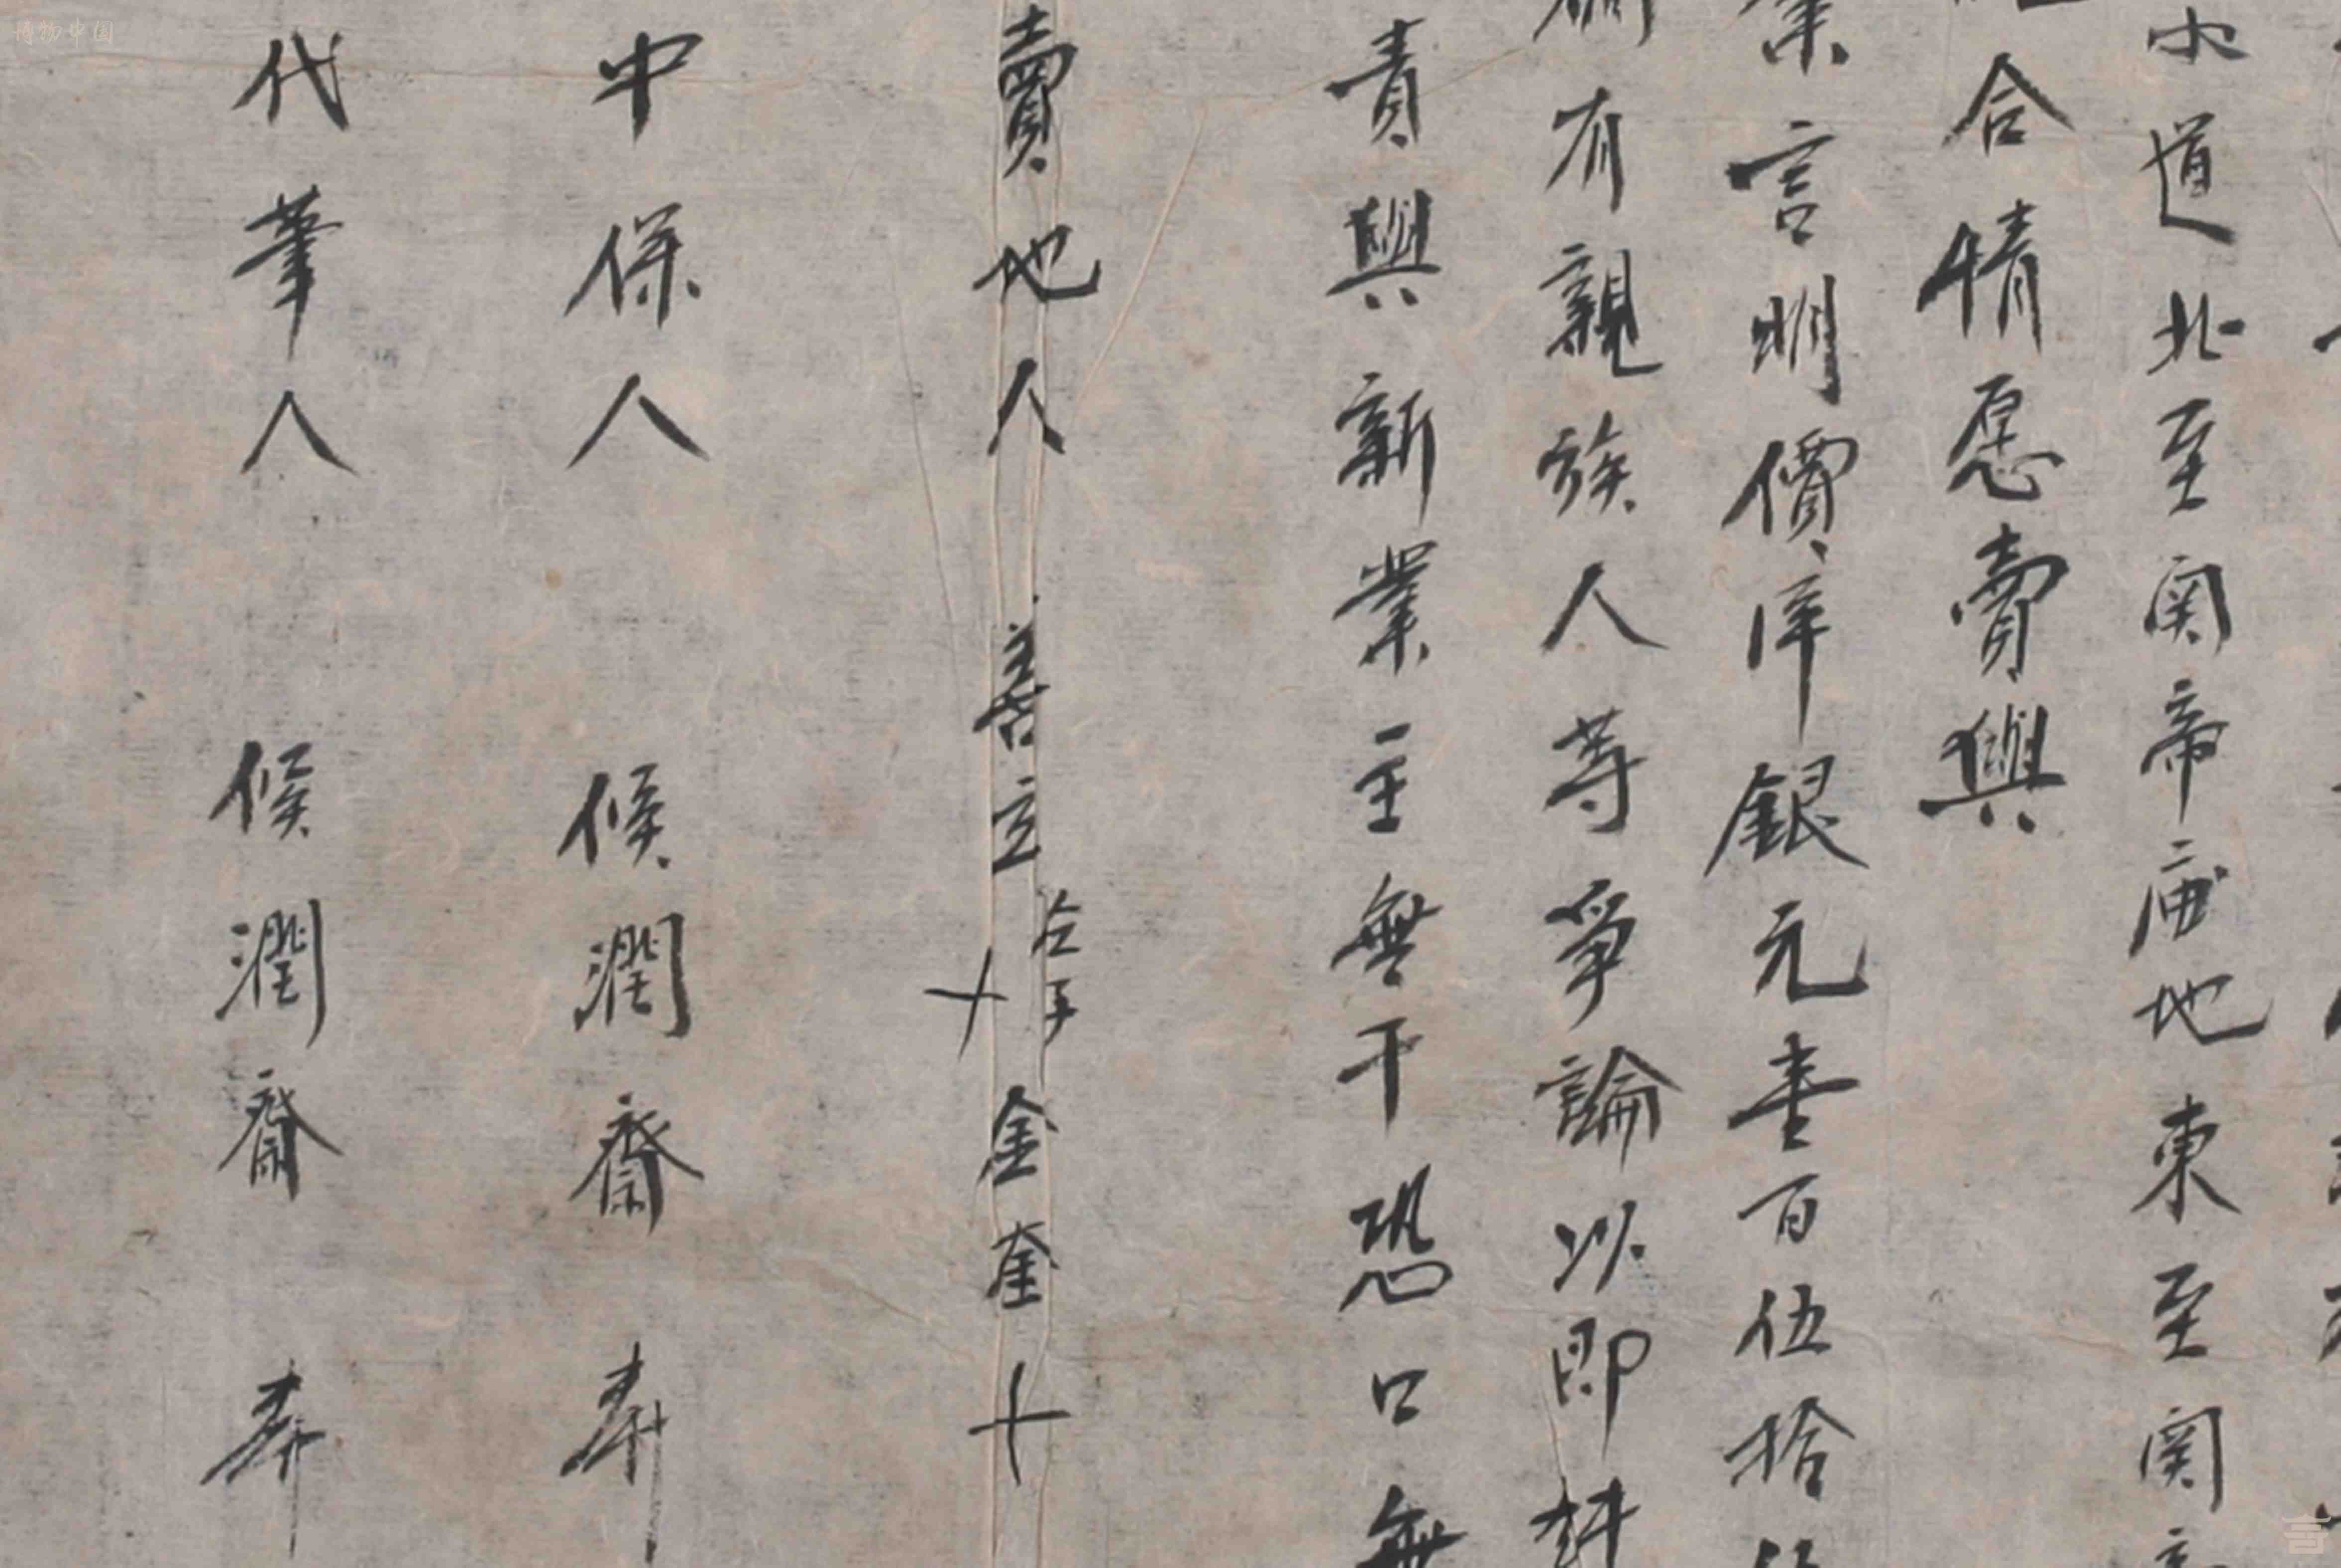 小道北至関帝庙地東至関
合情愿賣與
業言明價洋銀元壹百伍拾
有親族人等爭論以即
責與新業主無干恐口無
賣地人 善立 右手 十 金奎 十
中保人 候潤齋 奉
代筆人 候潤齋 奉
博物中国